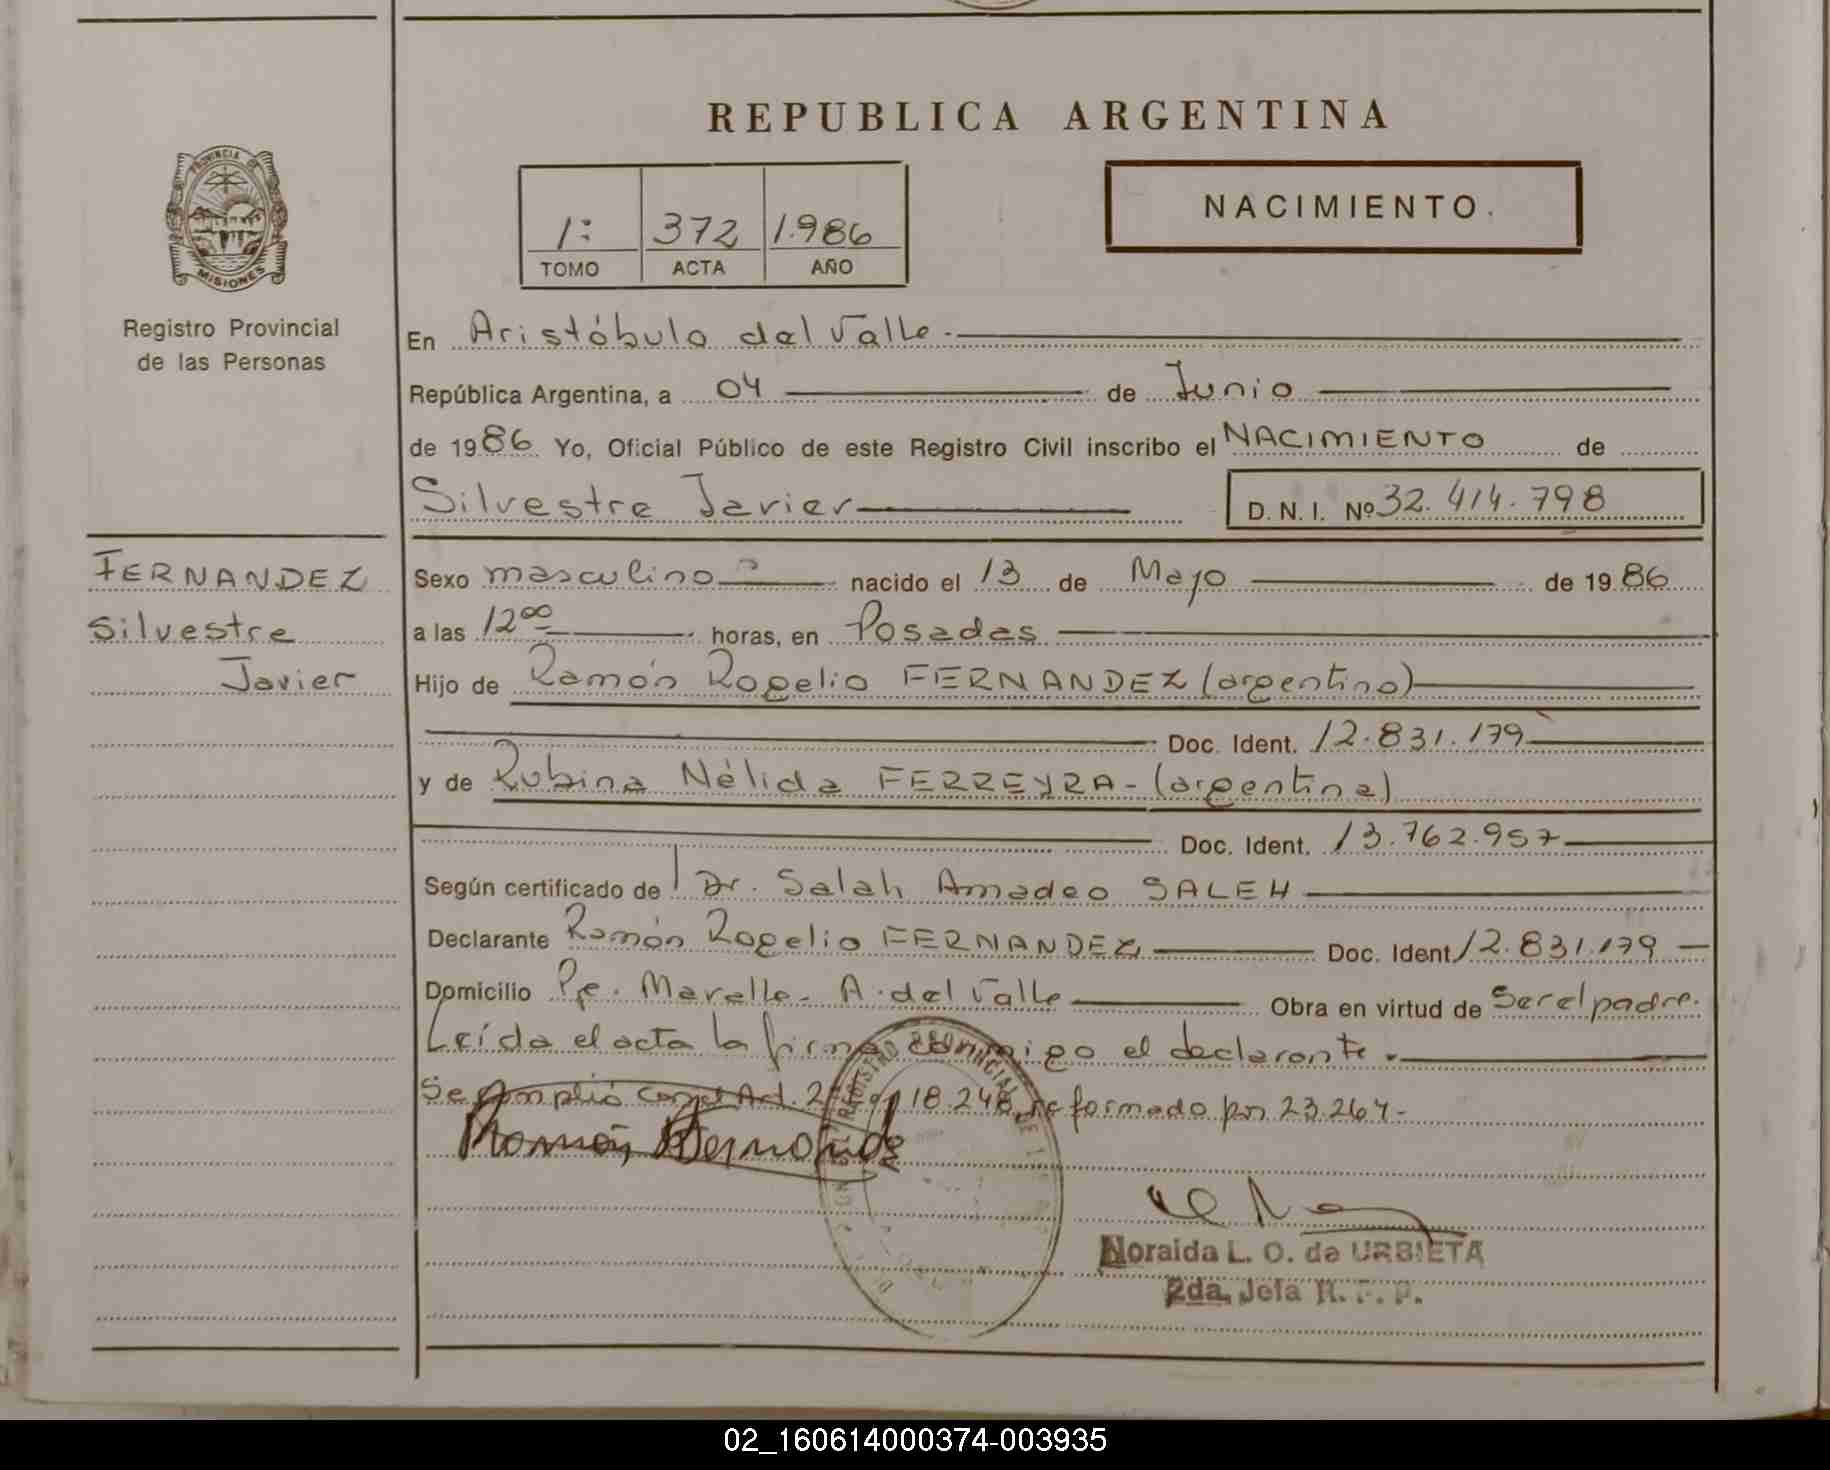 REPUBLICA ARGENTINA
PROVINCIA DE
MISIONES
Registro Provincial
de las Personas
1: 372 1.986
TOMO ACTA AÑO
NACIMIENTO.
En Aristóbulo del Valle.
República Argentina, a 04 de Junio
de 1986. Yo, Oficial Público de este Registro Civil inscribo el NACIMIENTO de
Silvestre Javier D. N. I. Nº 32.414.798
FERNANDEZ
Silvestre
Javier
Sexo masculino nacido el 13 de Mayo de 1986
a las 12⁰⁰ horas, en Posadas
Hijo de Ramón Rogelio FERNANDEZ (argentino)
Doc. Ident. 12.831.179
y de Rubina Nélida FERREYRA - (argentina)
Doc. Ident. 13.762.957
Según certificado de Dr. Salah Amadeo SALEH
Declarante Ramón Rogelio FERNANDEZ Doc. Ident 12.831.179
Domicilio Pje. Mavalle. A. del Valle Obra en virtud de Ser el padre.
Leída el acta la firma conmigo el declarante.
Se cumplió con el Art. 2 18.248 reformado por 23.264-
REGISTRO PROVINCIAL DE
Noraida L. O. de URBIETA
2da. Jefa R. P. P.
02_160614000374-003935